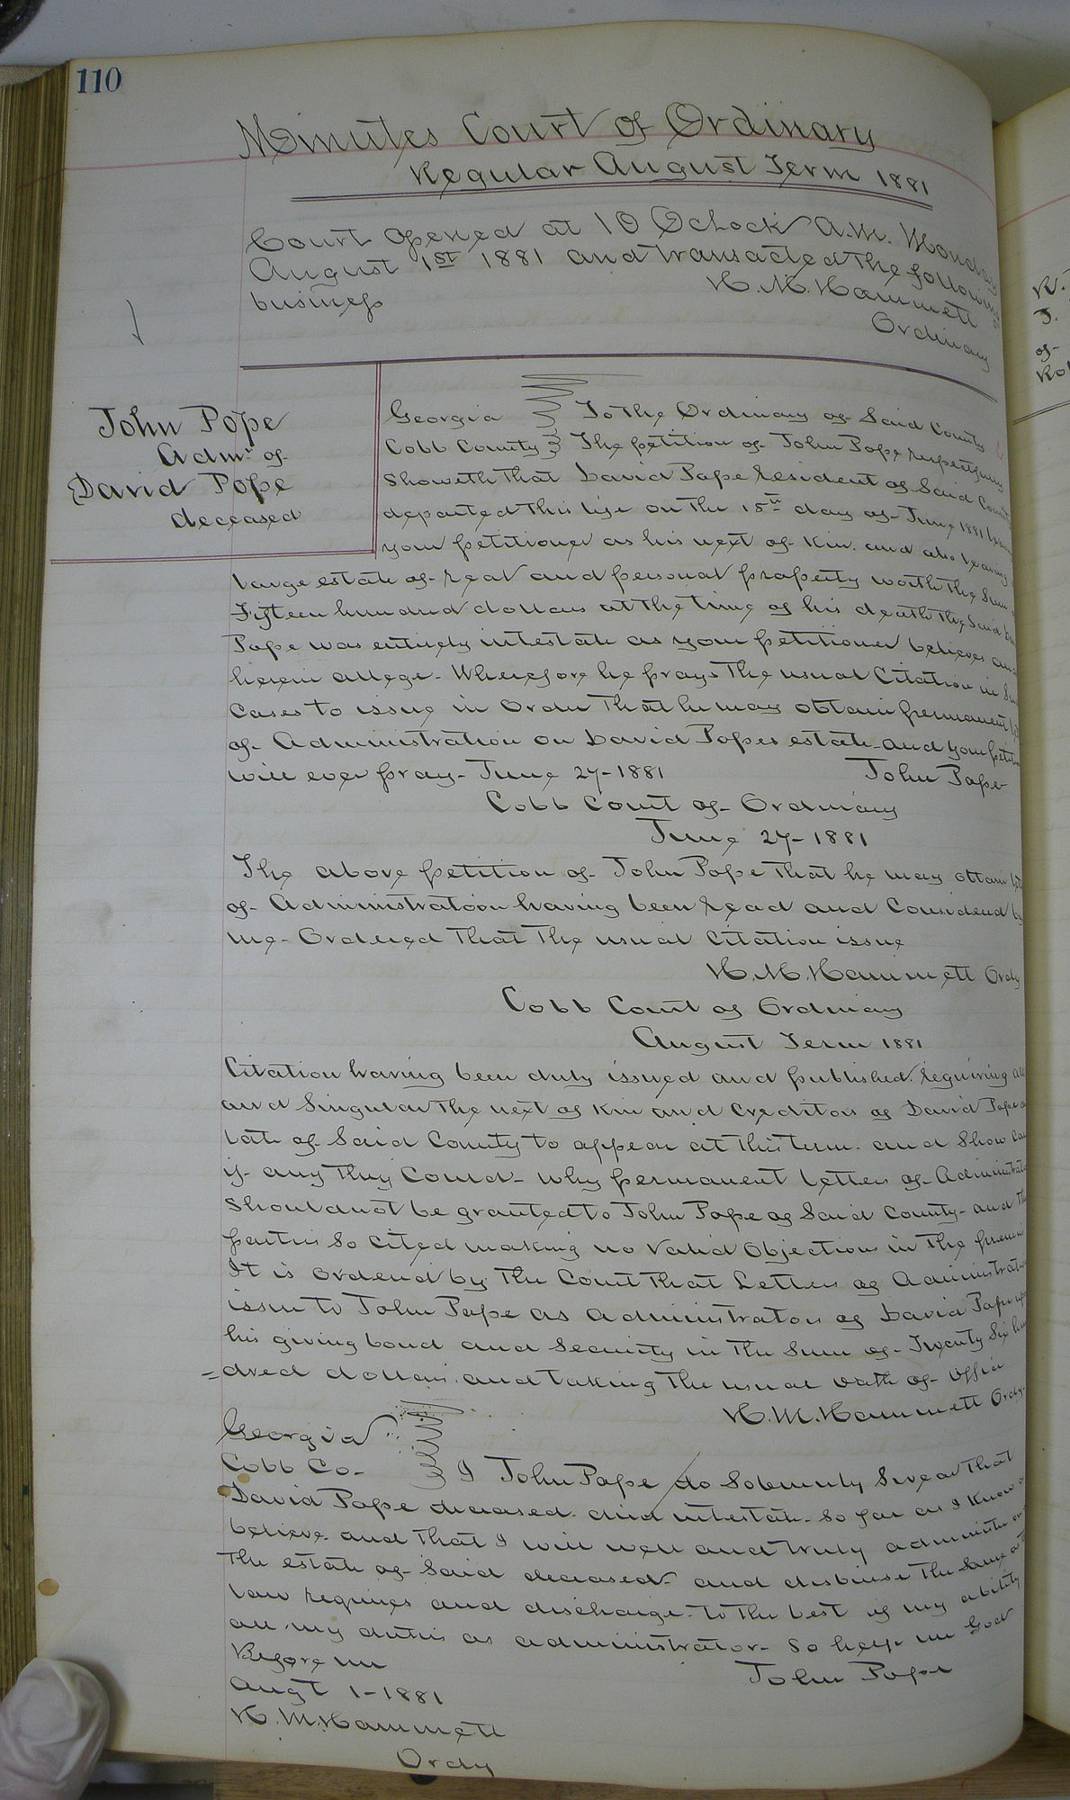 110
Minutes Court of Ordinary
Regular August Term 1881
Court opened at 10 Oclock A.M. Monday
August 1st 1881 and transacted the following
business
H. M. Hammett
Ordinary
John Pope
Admr of
David Pope
deceased
Georgia To the Ordinary of Said County
Cobb County The petition of John Pope respectfully
Showeth that David Pope resident of Said County
departed this life on the 15th day of June 1881
your petitioner as his next of Kin. and also leaving
large estate of real and personal property worth the Sum
Fifteen hundred dollars at the time of his death the Said
Pope was entirely intestate as your petitioner believes and
herein allege. Wherefore he prays the usual Citation in Such
Cases to issue in order that he may obtain permanent
of Administration on David Popes estate and your
will ever pray. June 27-1881 John Pope
Cobb Court of Ordinary
June 27-1881
The above petition of John Pope that he may obtain
of Administration having been read and Considered by
me. Ordered that the usual Citation issue
H. M. Hammett Ordy
Cobb Court of Ordinary
August Term 1881
Citation having been duly issued and published. requiring all
and Singular the next of Kin and Creditors of David Pope
late of Said County to appear at this term. and Show
if any they Could why permanent Letters of
Should not be granted to John Pope of Said County and the
parties So cited making no valid Objection in the premises
It is ordered by the Court that Letters of Administration
issue to John Pope as administrator of David Pope upon
his giving bond and Security in the Sum of Twenty Six hun
=dred dollars. and taking the usual oath of office
H. M. Hammett Ordy
Georgia
Cobb Co- I John Pope do Solemnly Swear that
David Pope deceased. died intestate. So far as I Know or
believe. and that I will well and truly administer on
the estate of Said deceased and disburse the Same as
law requires and discharge to the best of my ability
all my duties as administrator. So help me God
Before me John Pope
Augt 1-1881
H. M. Hammett
Ordy